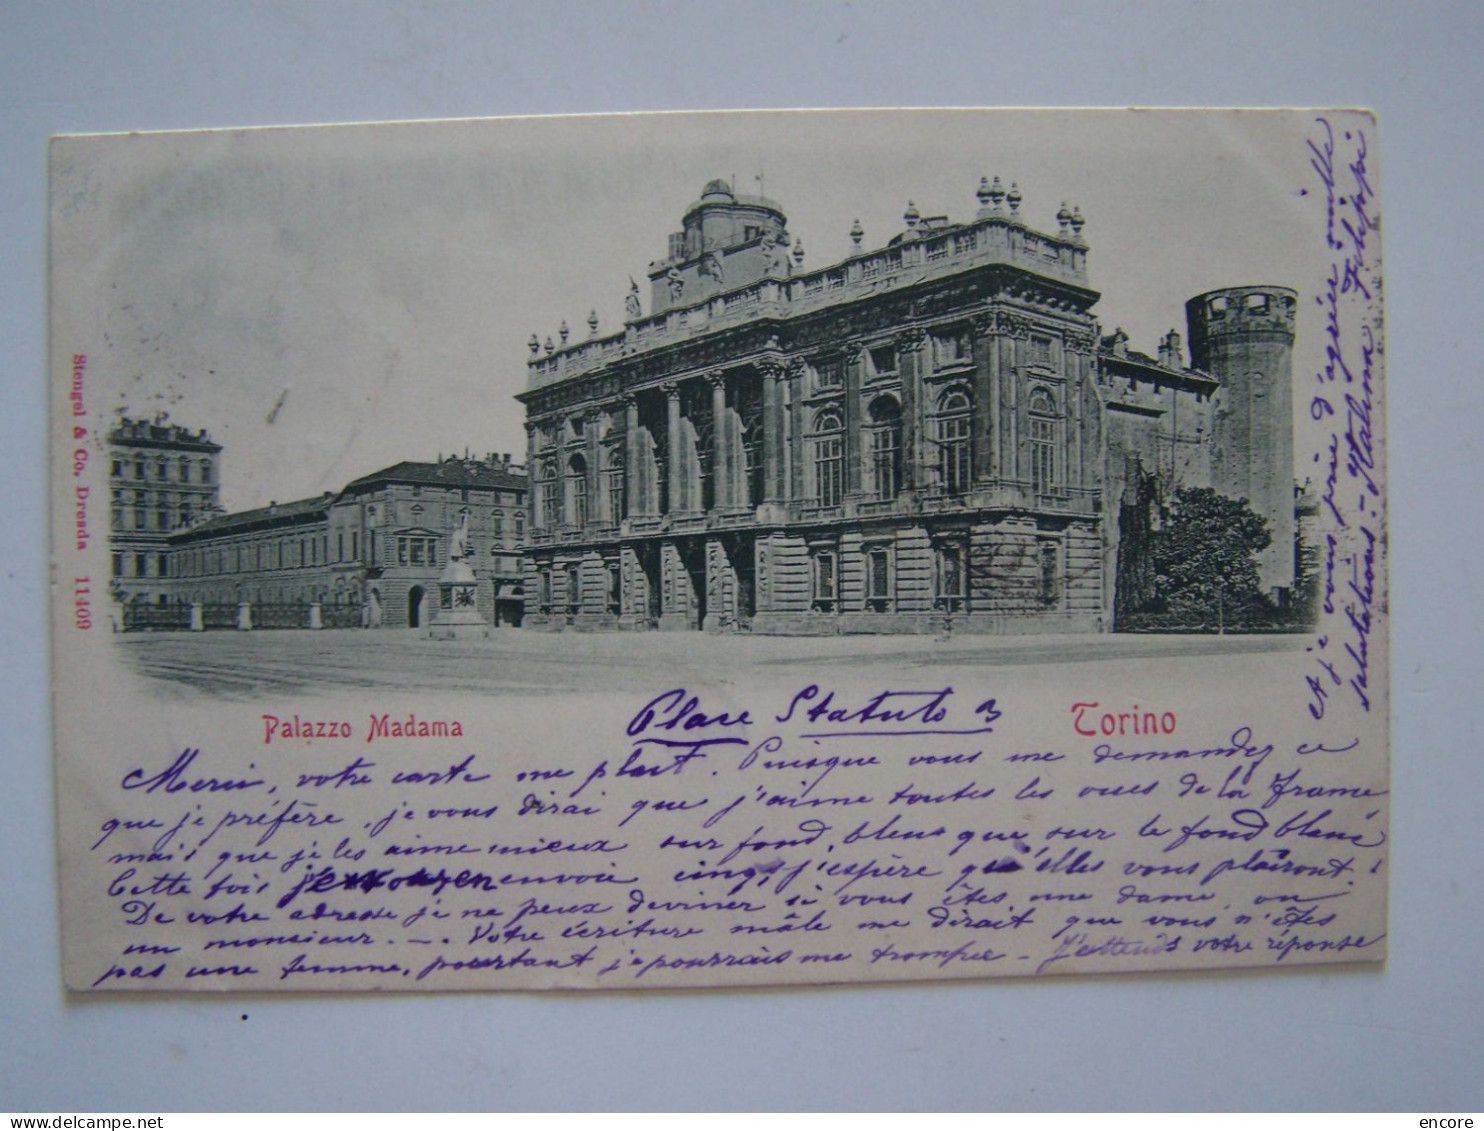 Stengel & Co, Dresda 11409
Palazzo Madama
Place Statuto 3
Torino
Merci, votre carte me plait. Puisque vous me demandez ce
que je préfère, je vous dirai que j'aime toutes les vues de la France
mais que je les aime mieux sur fond, bleu que sur le fond blanc
Cette fois envoie cinq, j'espère qu'elles vous plairont.
De votre adresse je ne peux deviner si vous êtes une dame, ou
un monsieur. -. Votre écriture mâle me dirait que vous n'êtes
pas une femme, pourtant je pourrais me trompee - J'attends votre réponse
et je vous prie d'agréér mille
salutations :- Italina Filippi
encore